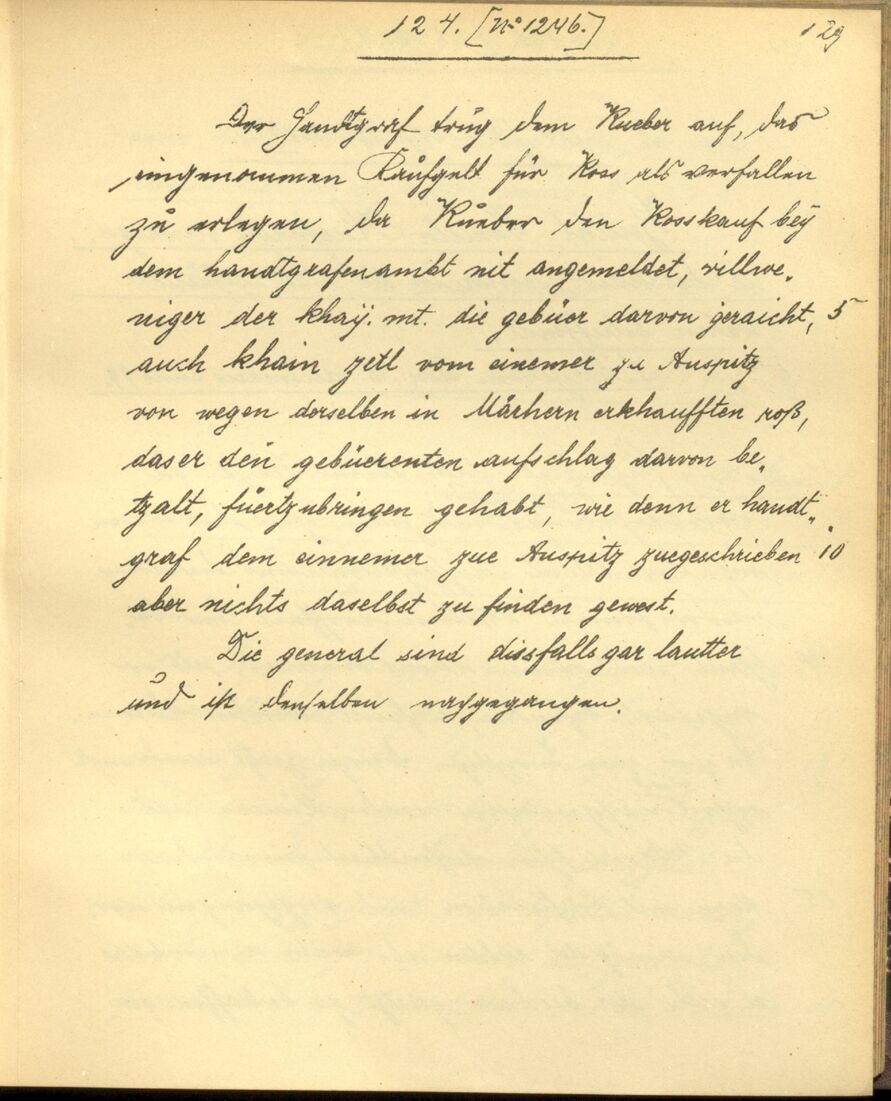 124. [No 1246.]
129
Der Handtgraf trug dem Kueber auf, das
eingenommen Kaufgelt für Ross als verfallen
zu erlegen, da Kueber den Rosskauf bey
dem handtgrafenambt nit angemeldet, villwe„
niger der khaÿ. mt. die gebüer darvon geraicht, 5
auch khain zetl vom einemer zu Auspitz
von wegen derselben in Märhern erkhaufften roß,
das er den gebüerenten aufschlag darvon be„
tzalt, füertzubringen gehabt, wie denn er handt„
graf dem einnemer zue Auspitz zuegeschrieben 10
aber nichts daselbst zu finden gewest.
Die general sind dissfalls gar lautter
und ist denselben nachgegangen.